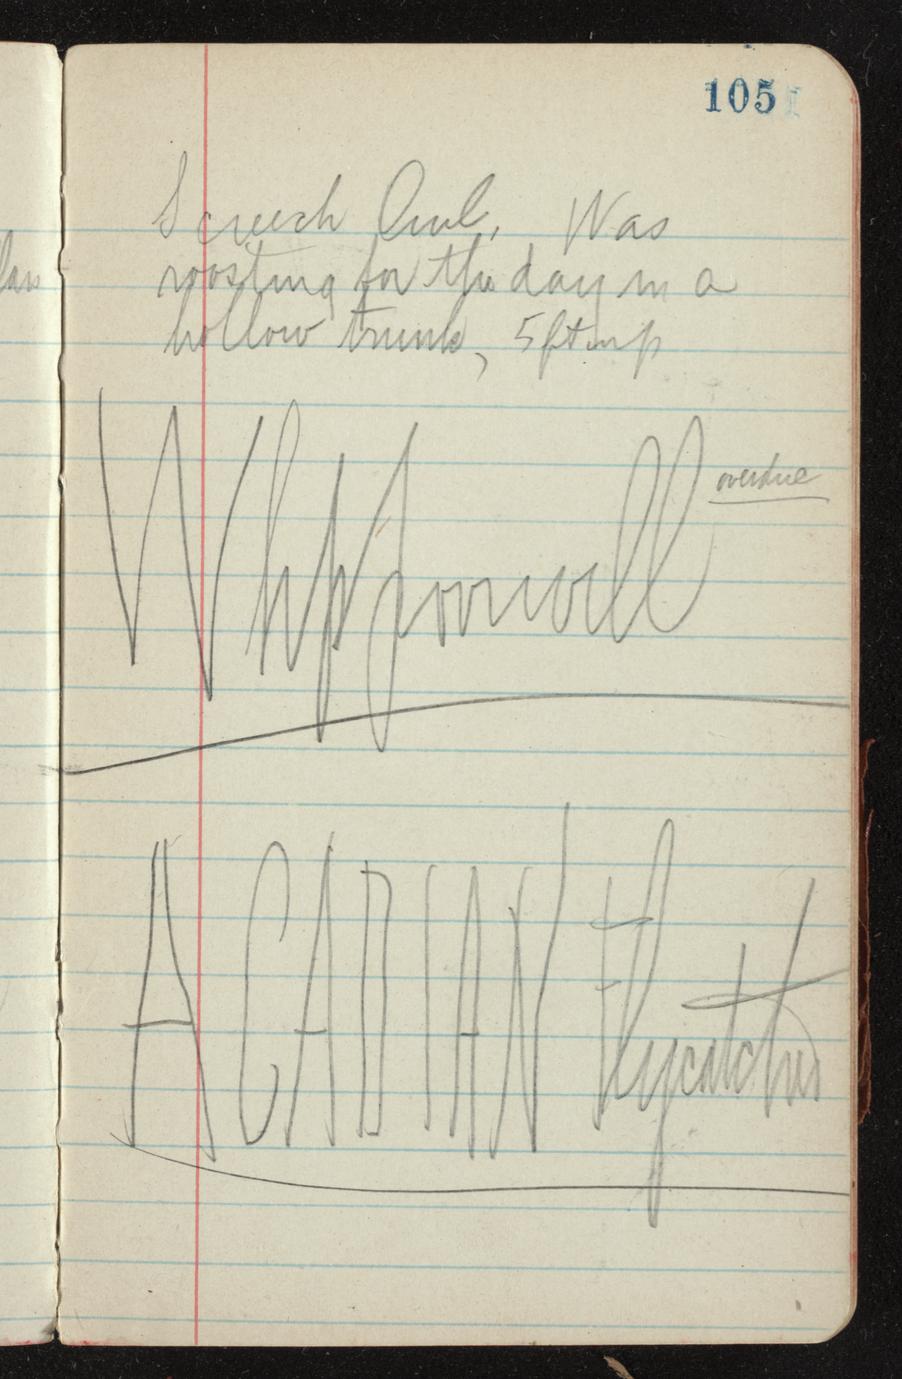 105
Screech Owl. Was
roosting for the day in a
hollow trunk, 5 ft up
Whippoorwill overdue
ACADIAN Flycatcher